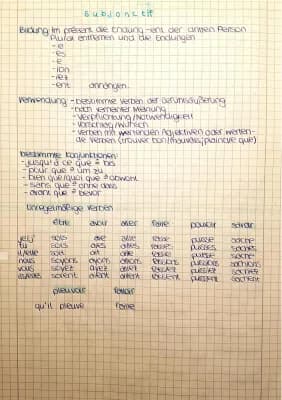 Subjonctif
Bildung: Im présent die Endung -ent der dritten Person
Plural entfernen und die Endungen
-e
-es
-e
-ion
-iez
-ent anhängen.
Verwendung - bestimmte Verben der Gefühlsäußerung
- nach verneinter Meinung
- Verpflichtung/Notwendigkeit
- Vorschlag/Wunsch
- Verben mit wertenden Adjektiven oder werten-
de Verben (trouver bon/mauvais; plaindre que)
bestimmte Konjunktionen:
- jusqu'à ce que = bis
- pour que = um zu
- bien que/quoi que = obwohl
- sans que = ohne dass
- avant que = bevor
Unregelmäßige Verben
être avoir aller faire pouvoir savoir
je/j' sois aie aille fasse puisse sache
tu sois aies ailles fasses puisses saches
il/elle soit ait aille fasse puisse sache
nous soyons ayons allions fassions puissions sachions
vous soyez ayez alliez fassiez puissiez sachiez
ils/elles soient aient aillent fassent puissent sachent
pleuvoir
qu'il pleuve